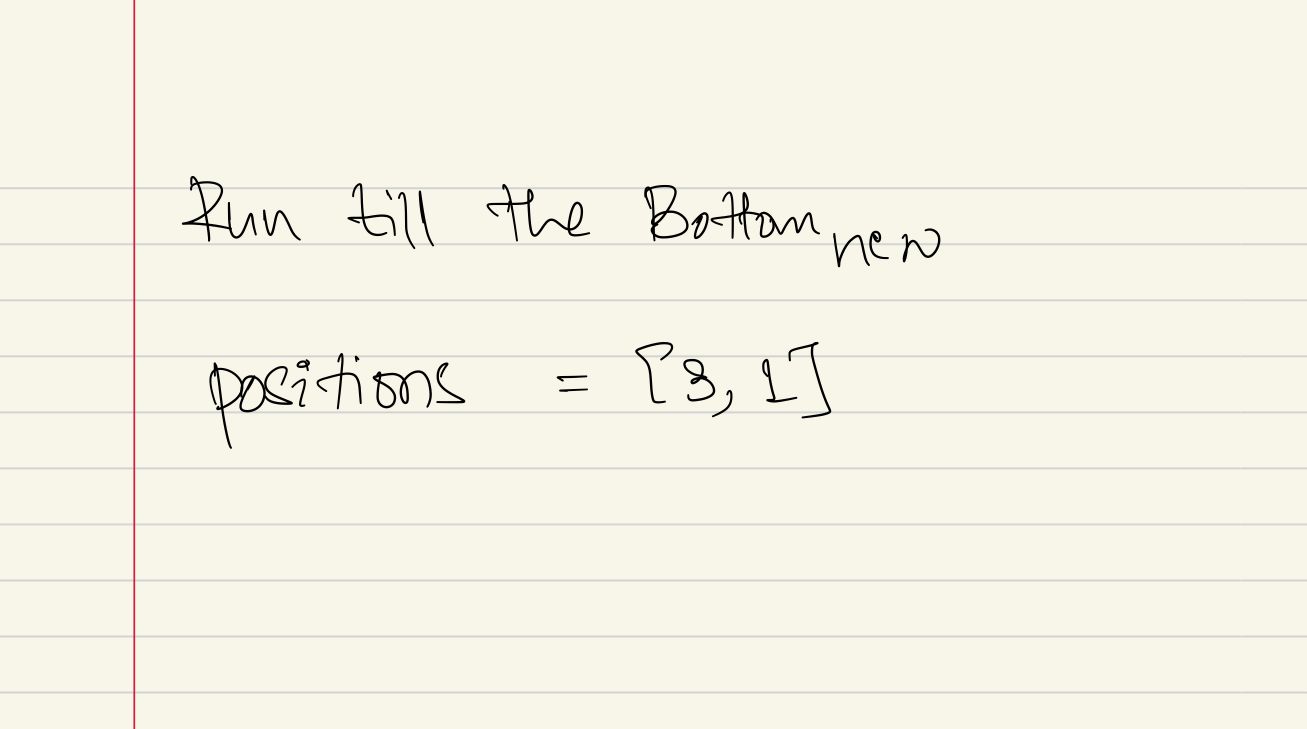 Run till the Bottom new
positions = [3, 1]